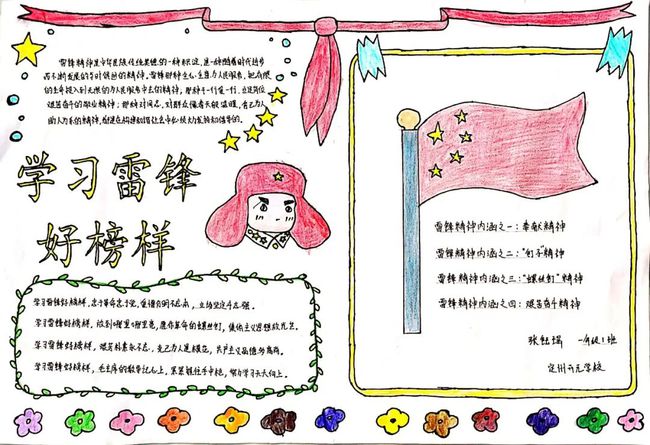 雷锋精神是中华民族传统美德的一种积淀,是一种随着时代进步
而不断发展的与时俱进的精神。雷锋那种全心全意为人民服务,把有限
的生命投入到无限的为人民服务中去的精神,那种干一行爱一行,立足岗位
艰苦奋斗的敬业精神;那种对同志、对群众像春天般温暖,舍己为人
助人为乐的精神,
学习雷锋
好榜样
学习雷锋好榜样,忠于革命忠于党,爱憎分明不忘本,立场坚定斗志强。
学习雷锋好榜样,放到哪里哪里亮,愿做革命的螺丝钉,集体主义思想放光芒。
学习雷锋好榜样,艰苦朴素永不忘,克己为人是模范,共产主义品德多高尚。
学习雷锋好榜样,毛主席的教导记心上,紧紧握住手中枪,努力学习天天向上。
雷锋精神内涵之一:奉献精神
雷锋精神内涵之二:“钉子”精神
雷锋精神内涵之三:“螺丝钉”精神
雷锋精神内涵之四:艰苦奋斗精神
一年级1班
定州开元学校